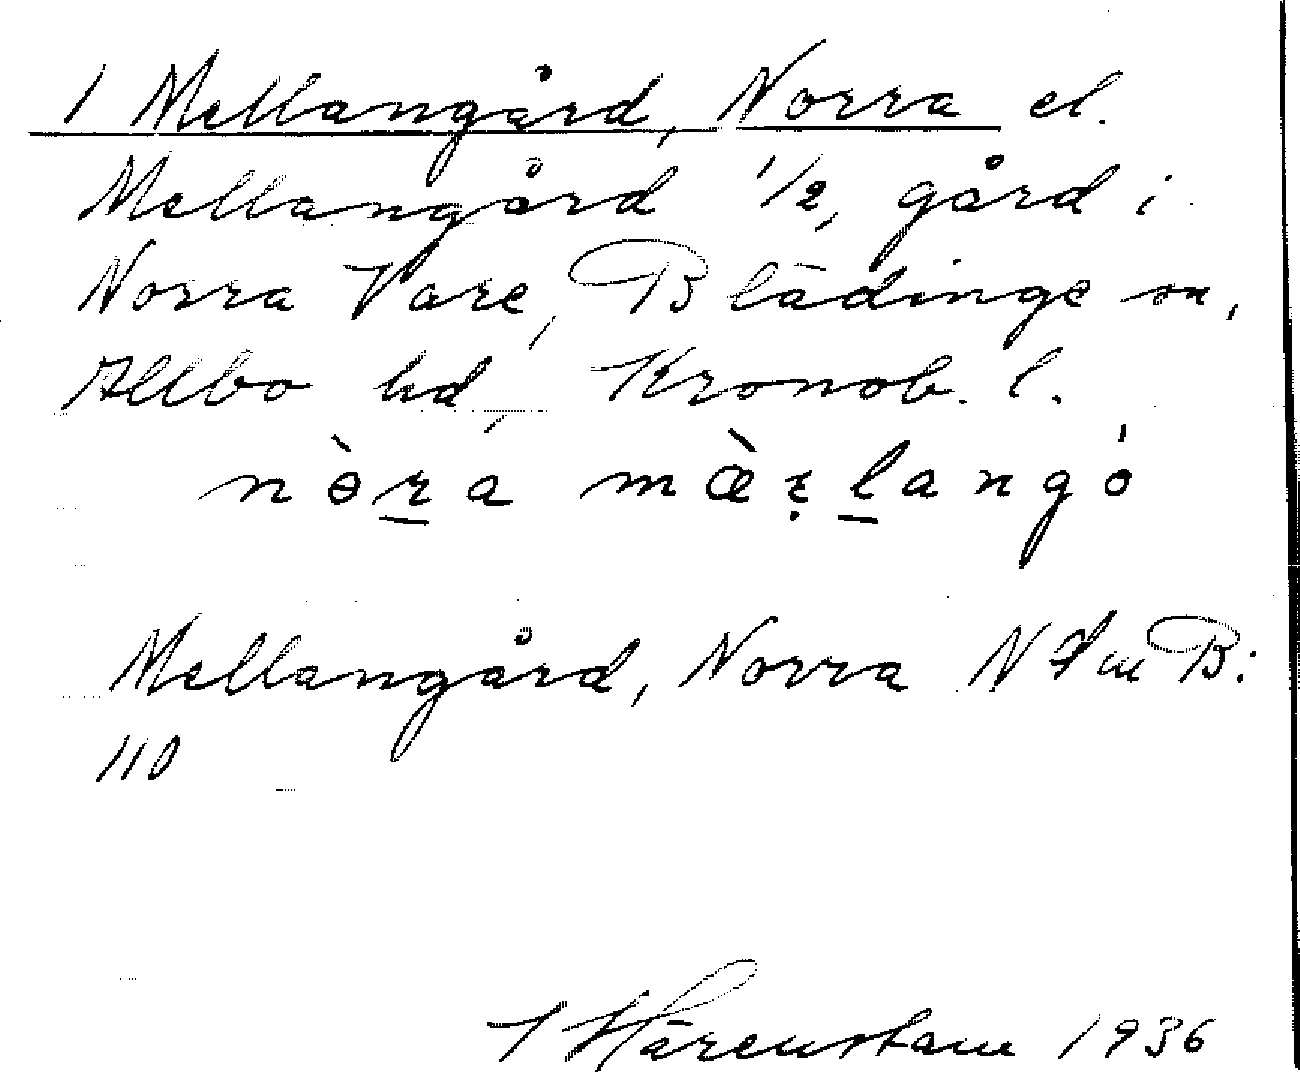 1 Mellangård, Norra el.
Mellangård 1/2, gård i
Norra Vare, Blädinge sn,
Allbo hd, Kronob. l.
nòra mæ̀ɛlangó
Mellangård, Norra N B:
110
Härenstam 1936